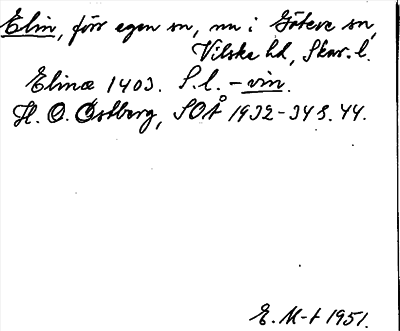 Elin, förr egen sn, nu i Göteve sn,
Vilske hd, Skar. l.
Elinæ 1403. S. l. – vin.
H. O. Östberg, SOÅ 1932-34 s. 44.
E. M-t 1951.